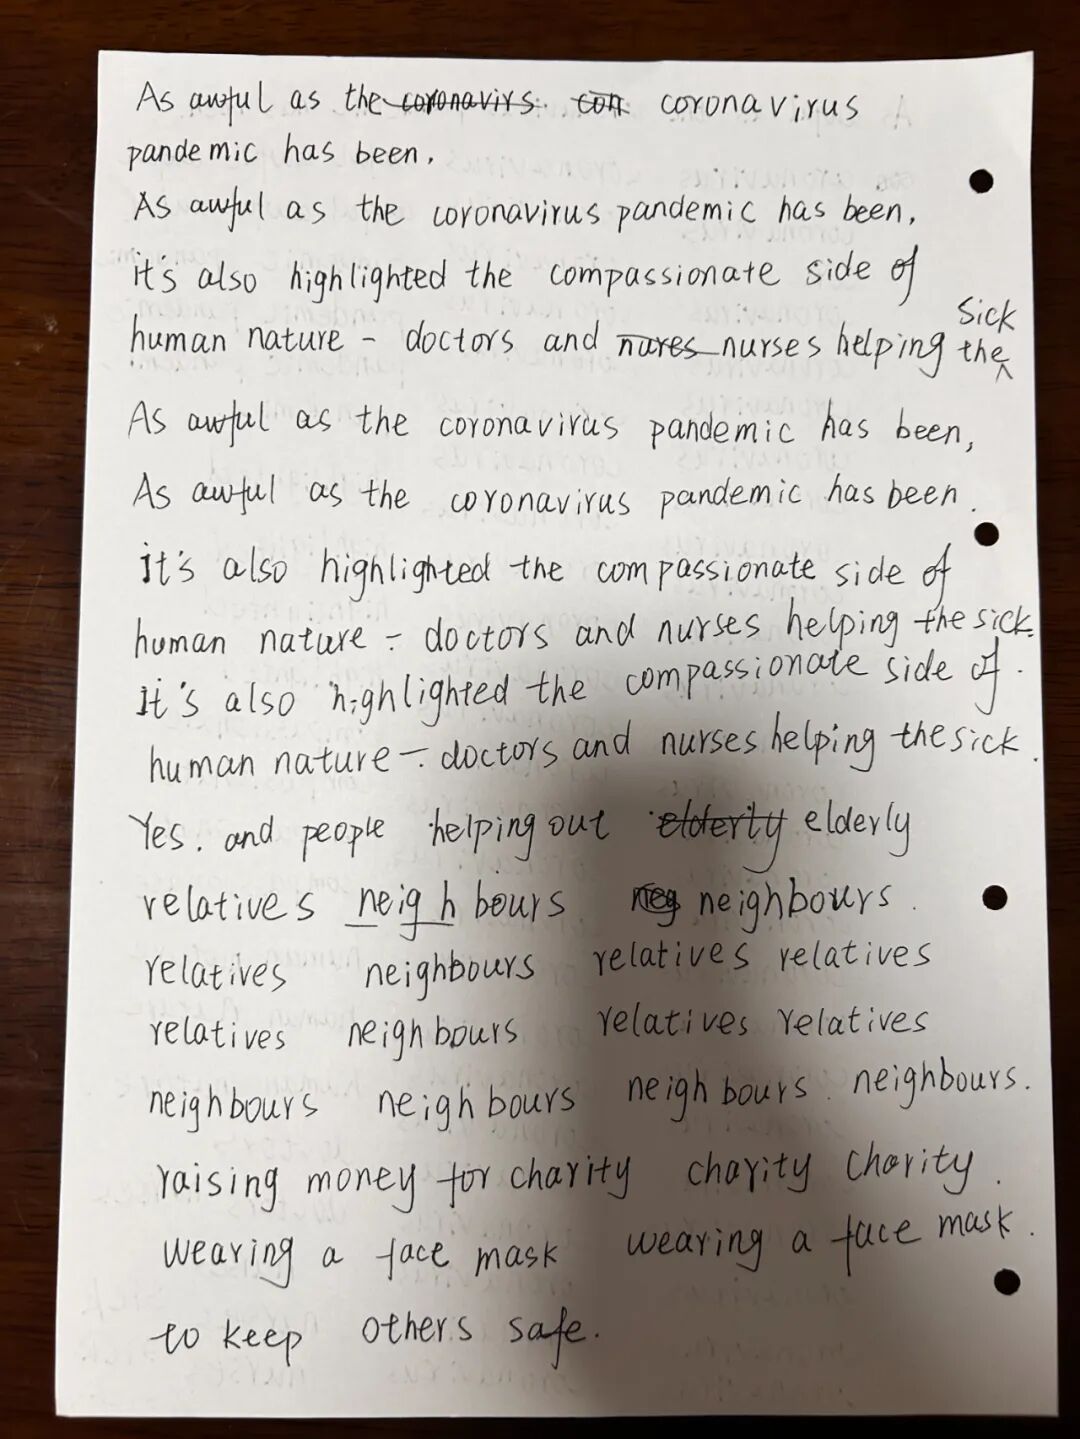 As awful as the coronavirs. con coronavirus
pandemic has been.
As awful as the coronavirus pandemic has been,
it's also highlighted the compassionate side of
human nature - doctors and nures nurses helping the sick
As awful as the coronavirus pandemic has been,
As awful as the coronavirus pandemic has been.
it's also highlighted the compassionate side of
human nature - doctors and nurses helping the sick.
it's also highlighted the compassionate side of.
human nature - doctors and nurses helping the sick.
Yes. and people helping out elderty elderly
relatives neighbours neg neighbours.
relatives neighbours relatives relatives
relatives neighbours relatives relatives
neighbours neighbours neighbours. neighbours.
raising money for charity charity charity.
wearing a face mask wearing a face mask.
to keep others safe.